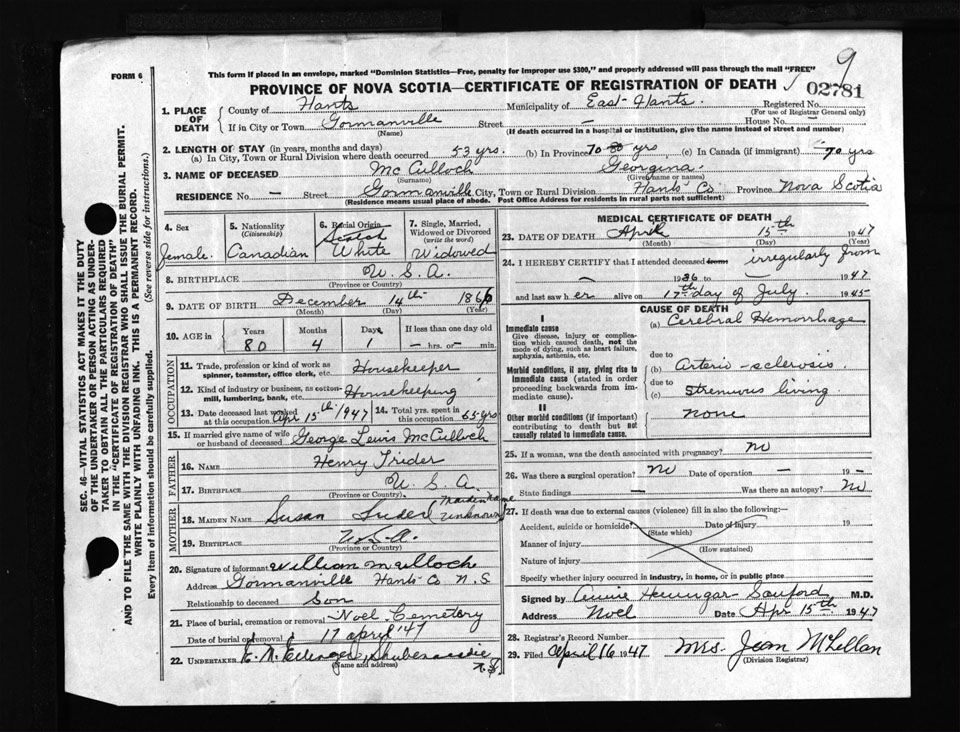 9
02781
FORM 6
This form if placed in an envelope, marked "Dominion Statistics—Free, penalty for improper use $300," and properly addressed will pass through the mail "FREE"
PROVINCE OF NOVA SCOTIA—CERTIFICATE OF REGISTRATION OF DEATH
1. PLACE OF DEATH County of Hants Municipality of East Hants. Registered No.
(For use of Registrar General only)
If in City or Town Gormanville Street — House No. —
(Name) (If death occurred in a hospital or institution, give the name instead of street and number)
2. LENGTH OF STAY (in years, months and days)
(a) In City, Town or Rural Division where death occurred 53 yrs. (b) In Province 70 yrs (c) In Canada (if immigrant) 70 yrs
3. NAME OF DECEASED McCulloch Georgina
(Surname) (Given name or names)
RESIDENCE No. — Street Gormanville City, Town or Rural Division Hants Co Province Nova Scotia
(Residence means usual place of abode. Post Office Address for residents in rural parts not sufficient)
4. Sex
female.
5. Nationality
(Citizenship)
Canadian
6. Racial Origin
Scotch
White
7. Single, Married, Widowed or Divorced
(write the word)
Widowed
8. BIRTHPLACE U. S. A.
(Province or Country)
9. DATE OF BIRTH December 14th 1866
(Month) (Day) (Year)
10. AGE in Years Months Days If less than one day old
80 4 1 — hrs. or — min.
OCCUPATION
11. Trade, profession or kind of work as spinner, teamster, office clerk, etc. Housekeeper
12. Kind of industry or business, as cotton-mill, lumbering, bank, etc. Housekeeping
13. Date deceased last worked at this occupation Apr 15th/1947 14. Total yrs. spent in this occupation 65 yrs
15. If married give name of wife or husband of deceased George Lewis McCulloch
FATHER
16. NAME Henry Trider
17. BIRTHPLACE U. S. A.
(Province or Country)
MOTHER
18. MAIDEN NAME Susan Trider (Maiden name unknown)
19. BIRTHPLACE U.S.A.
(Province or Country)
20. Signature of informant William McCulloch
Address Gormanville Hants Co N. S
Relationship to deceased Son
21. Place of burial, cremation or removal Noel Cemetery
Date of burial or removal 17 April '47
22. UNDERTAKER Shubenacadie
(Name and address) N.S.
MEDICAL CERTIFICATE OF DEATH
23. DATE OF DEATH April 15th 1947
(Month) (Day) (Year)
24. I HEREBY CERTIFY that I attended deceased from irregularly from
— 1936 to — 1947
and last saw her alive on 17th day of July. 1945
CAUSE OF DEATH
I
Immediate cause
Give disease, injury or complication which caused death, not the mode of dying, such as heart failure, asphyxia, asthenia, etc.
(a) Cerebral Hemorrhage
due to
Morbid conditions, if any, giving rise to immediate cause (stated in order proceeding backwards from immediate cause).
(b) Arterio-sclerosis
due to
(c) Strenuous living
II
Other morbid conditions (if important) contributing to death but not causally related to immediate cause.
none
25. If a woman, was the death associated with pregnancy? no
26. Was there a surgical operation? no Date of operation — 19 —
State findings — Was there an autopsy? no
27. If death was due to external causes (violence) fill in also the following:—
Accident, suicide or homicide? Date of injury 19
(State which)
Manner of injury
(How sustained)
Nature of injury
Specify whether injury occurred in industry, in home, or in public place
Signed by Annie Hennigar Sanford M.D.
Address Noel Date Apr 15th 1947
28. Registrar's Record Number
29. Filed April 16 1947 Mrs. Jean McLellan
(Division Registrar)
SEC. 46—VITAL STATISTICS ACT MAKES IT THE DUTY
OF THE UNDERTAKER OR PERSON ACTING AS UNDER-
TAKER TO OBTAIN ALL THE PARTICULARS REQUIRED
IN THE "CERTIFICATE OF REGISTRATION OF DEATH"
AND TO FILE THE SAME WITH THE DIVISION REGISTRAR WHO SHALL ISSUE THE BURIAL PERMIT.
WRITE PLAINLY WITH UNFADING INK. THIS IS A PERMANENT RECORD.
Every item of information should be carefully supplied. (See reverse side for instructions.)